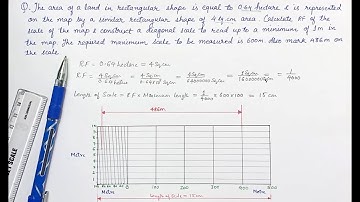 Q. The area of a land in rectangular shape is equal to 0.64 hectare & is represented
on the map by a similar rectangular shape of 4 sq cm area. Calculate RF of the
scale of the map & construct a diagonal scale to read upto a minimum of 1m in
the map. The required maximum scale to be measured is 600m. Also mark 486m on
the scale.
RF = 0.64 hectare = 4 sq cm
Length of Scale = RF x Maximum length = 1/4000 x 600x100 = 15 cm
486m
Metre
0
100
200
300
400
500
Metre
Length of Scale = 15cm